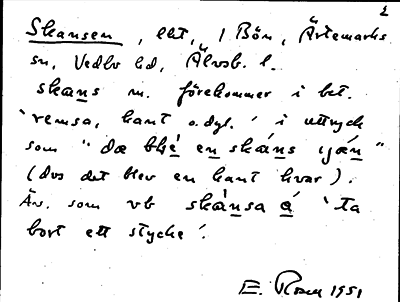 2
Skansen, ekt, i Bön, Ärtemarks
sn, Vedbo hd, Älvsb. l.
skans m. förekommer i bet.
'remsa, kant o.dyl.' i uttryck
som "dæ ble en skans ijæn"
(dvs det blev en kant kvar).
Äv. som vb skansa å 'ta
bort ett stycke'.
E. Rosell 1951